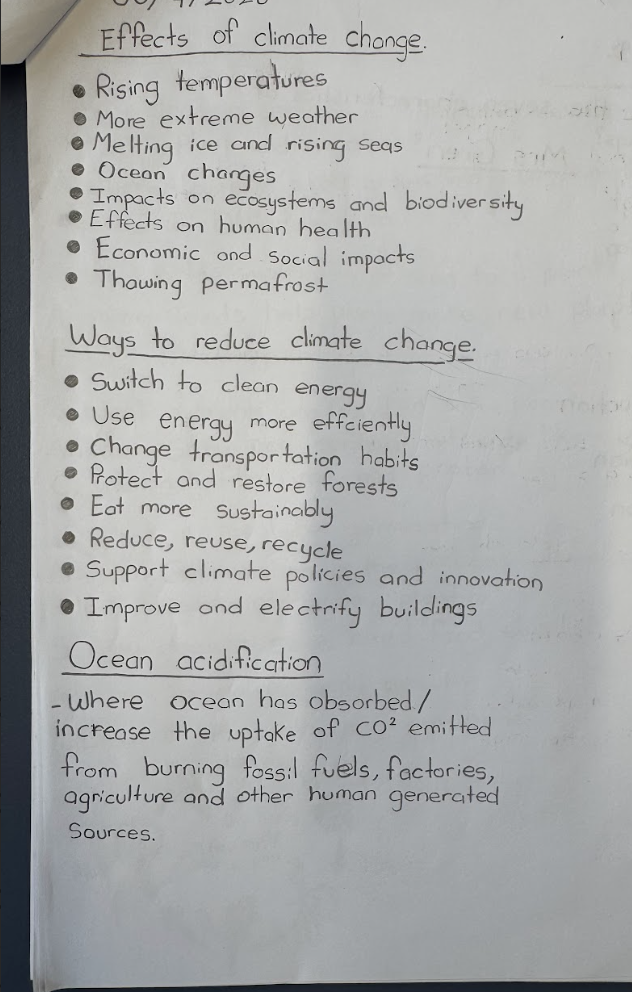 Effects of climate change.
• Rising temperatures
• More extreme weather
• Melting ice and rising seas
• Ocean changes
• Impacts on ecosystems and biodiversity
• Effects on human health
• Economic and social impacts
• Thawing permafrost
Ways to reduce climate change.
• Switch to clean energy
• Use energy more effciently
• Change transportation habits
• Protect and restore forests
• Eat more sustainably
• Reduce, reuse, recycle
• Support climate policies and innovation
• Improve and electrify buildings
Ocean acidification
- Where ocean has absorbed/
increase the uptake of CO² emitted
from burning fossil fuels, factories,
agriculture and other human generated
Sources.